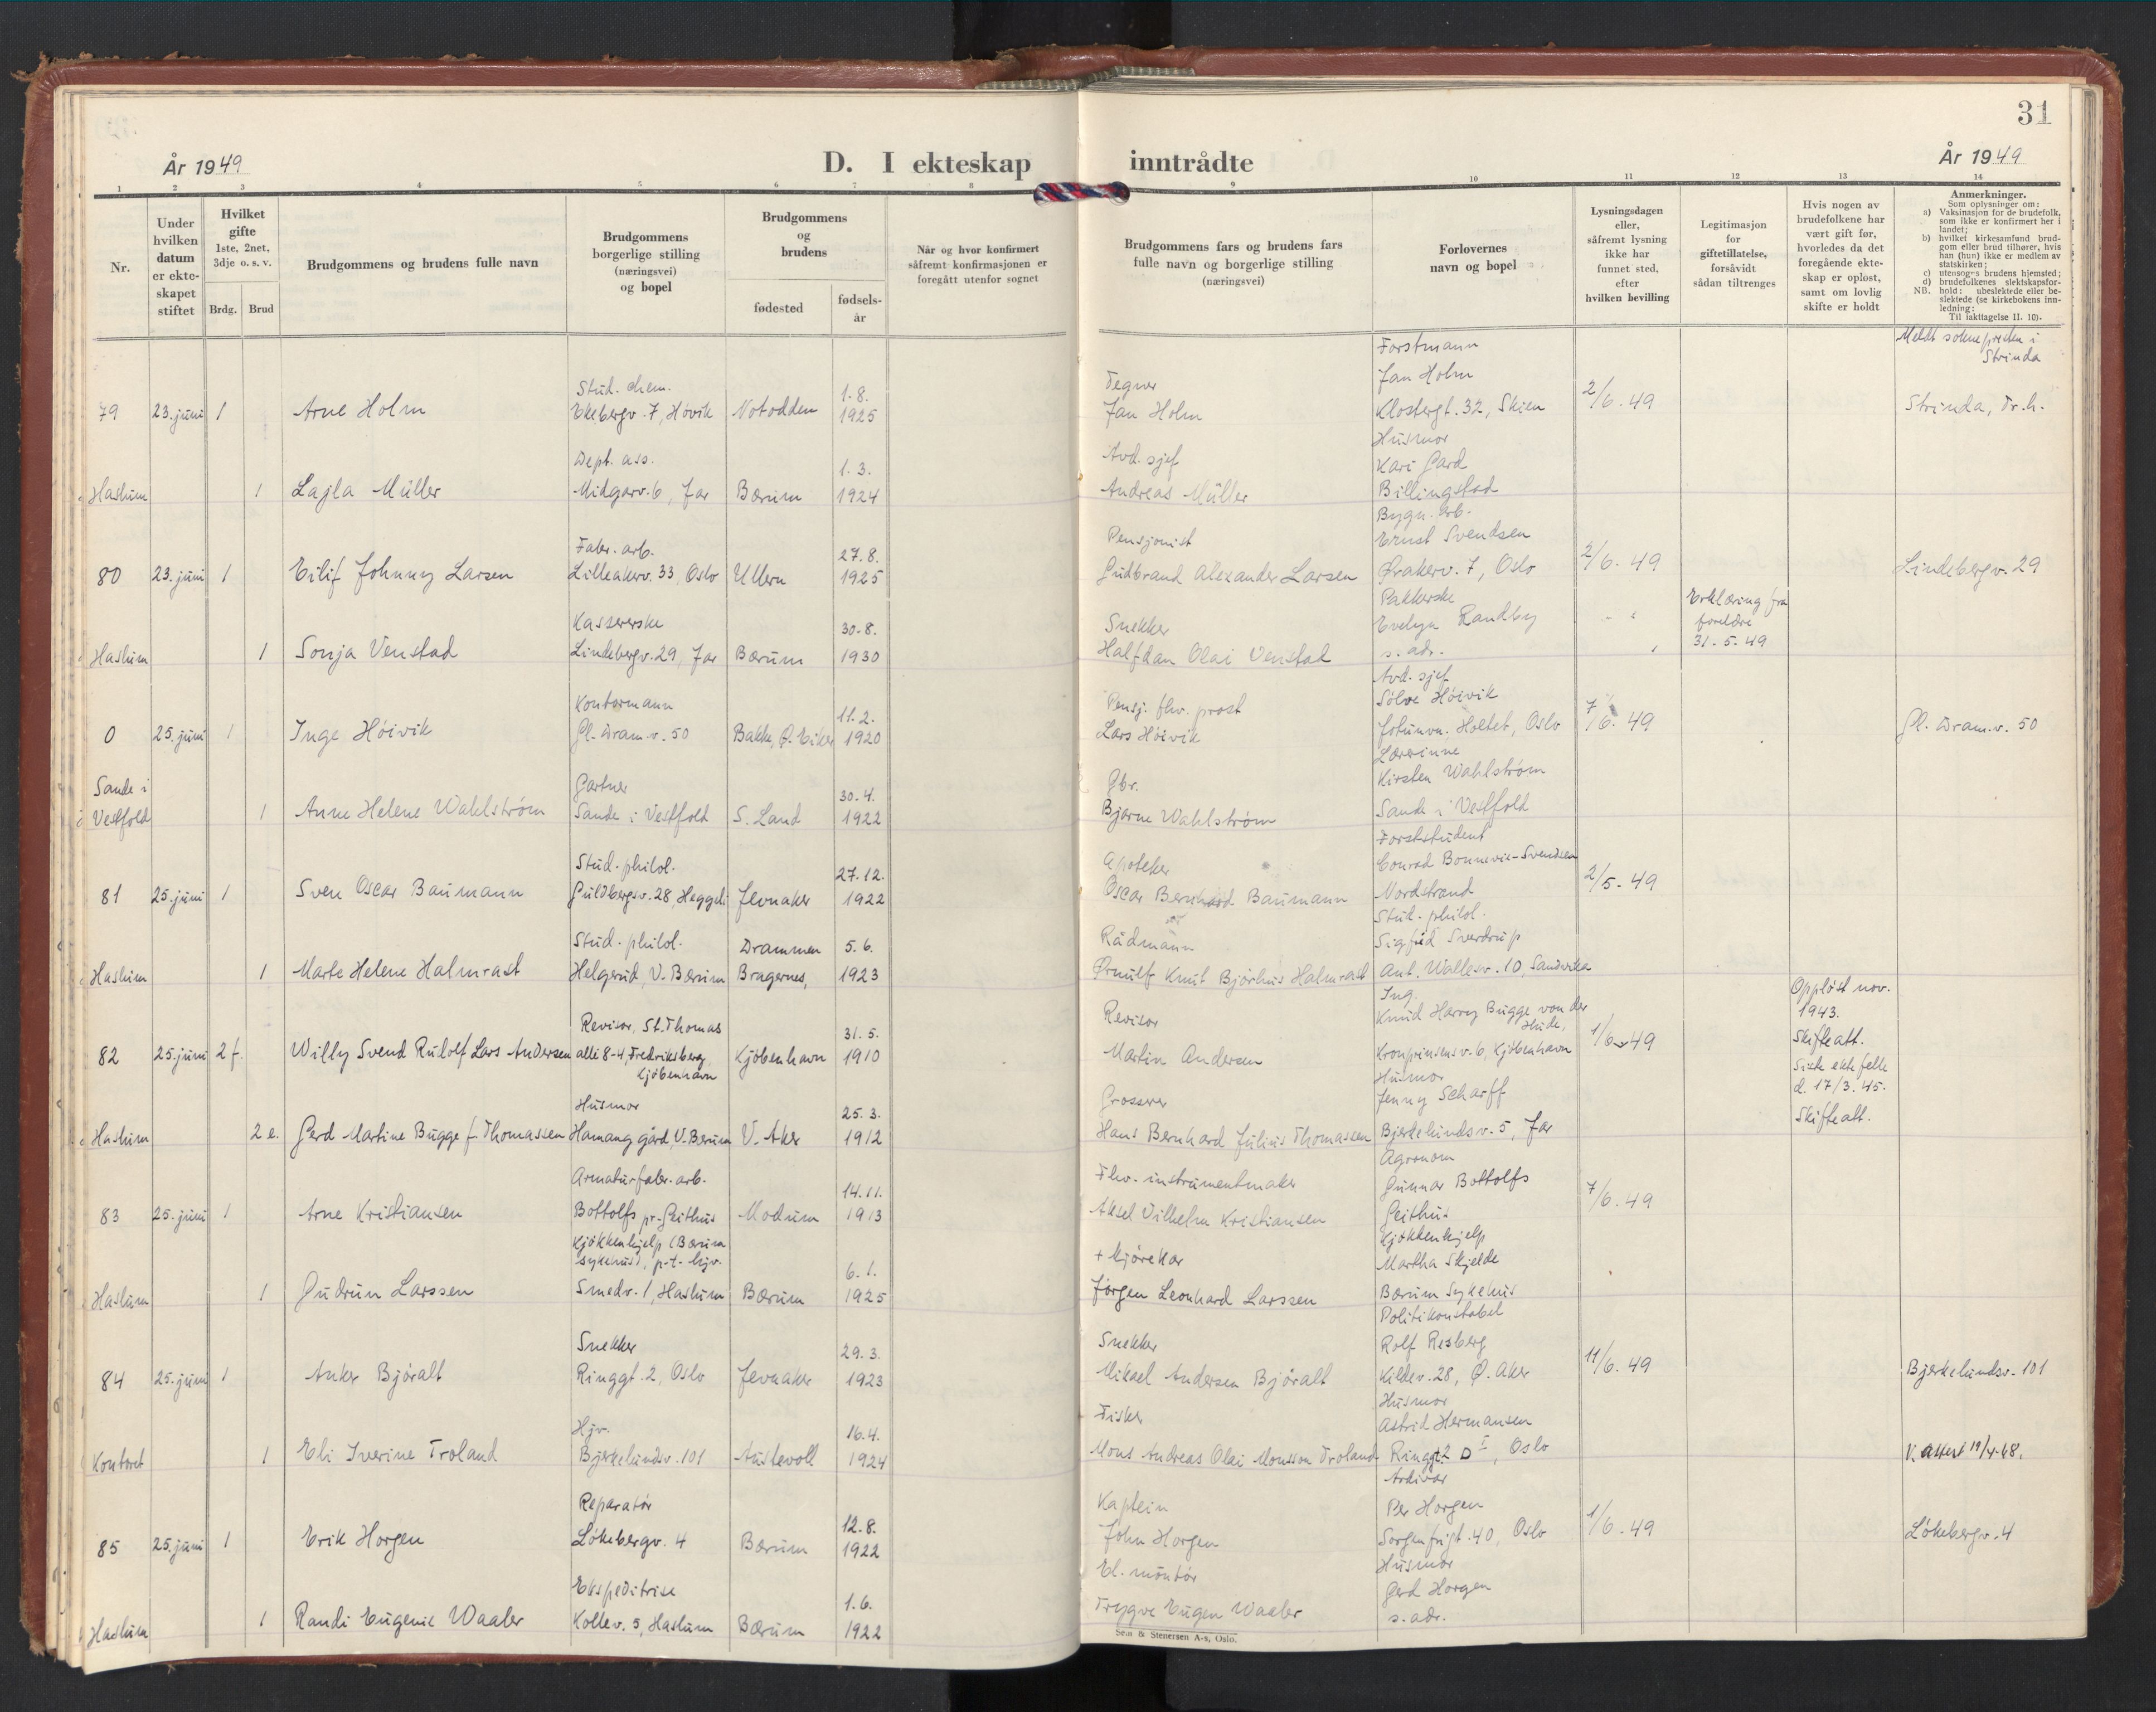 31
År 1949
D. I ekteskap inntrådte
År 1949
1 2 3 4 5 6 7 8 9 10 11 12 13 14
Nr.
Under hvilken datum er ekteskapet stiftet
Hvilket gifte 1ste, 2net, 3dje o. s. v.
Brdg. Brud
Brudgommens og brudens fulle navn
Brudgommens borgerlige stilling (næringsvei) og bopel
Brudgommens og brudens
fødested
fødsels-år
Når og hvor konfirmert såfremt konfirmasjonen er foregått utenfor sognet
Brudgommens fars og brudens fars fulle navn og borgerlige stilling (næringsvei)
Forlovernes navn og bopel
Lysningsdagen eller, såfremt lysning ikke har funnet sted, efter hvilken bevilling
Legitimasjon for giftetillatelse, forsåvidt sådan tiltrenges
Hvis nogen av brudefolkene har vært gift før, hvorledes da det foregående ekteskap er opløst, samt om lovlig skifte er holdt
Anmerkninger.
Som oplysninger om:
a) Vaksinasjon for de brudefolk, som ikke er konfirmert her i landet;
b) hvilket kirkesamfund brudgom eller brud tilhører, hvis han (hun) ikke er medlem av statskirken;
c) utensogns brudens hjemsted;
d) brudefolkenes slektskapsforhold: ubeslektede eller beslektede (se kirkebokens innledning:
NB. Til iakttagelse II. 10).
Meldt soknepresten i Strinda
79 23. juni 1 Arne Holm
Stud. chem.
Ekebergv. 7, Høvik
Notodden
1.8. 1925
Tegner
Jan Holm
Forstmann
Jan Holm
Klostergt. 32, Skien
2/6. 49
Strinda, Tr.h.
Haslum 1 Lajla Müller
Dept. ass.
Midgarv. 6, Jar
Bærum
1.3. 1924
Avd. sjef
Andreas Müller
Husmor
Kari Gard
Billingstad
80 23. juni 1 Eilif Johnny Larsen
Fabr. arb.
Lilleakerv. 33, Oslo
Ullern
27.8. 1925
Pensjonist
Gudbrand Alexander Larsen
Bygn. arb.
Ernst Svendsen
Ørakerv. 7, Oslo
2/6. 49
Lindebergv. 29
Haslum 1 Sonja Venstad
Kassererske
Lindebergv. 29, Jar
Bærum
30.8. 1930
Snekker
Halfdan Olai Venstad
Pakkerske
Evelyn Randby
s. adr.
Erklæring fra foreldre 31.5.49
0 25. juni 1 Inge Höivik
Kontormann
Gl. Dram.v. 50
Bakke, Ø. Eiker
11.2. 1920
Pensj. fhv. prost
Lars Höivik
Avd. sjef
Sölve Höivik
Jotunvn. Holtet, Oslo
7/6. 49
Gl. Dram.v. 50
Sande i Vestfold 1 Anne Helene Wahlström
Gartner
Sande i Vestfold
S. Land
30.4. 1922
Gbr.
Bjarne Wahlström
Lærerinne
Kirsten Wahlström
Sande i Vestfold
81 25. juni 1 Sven Oscar Baumann
Stud. philol.
Guldbergsv. 28, Heggeli
Jevnaker
27.12. 1922
Apoteker
Oscar Bernhard Baumann
Forststudent
Conrad Bonnevie-Svendsen
Nordstrand
2/5. 49
Haslum 1 Marte Helene Halmrast
Stud. philol.
Helgerud, V. Bærum
Drammen
Bragernes,
5.6. 1923
Rådmann
Ørnulf Knut Bjørhus Halmrast
Stud. philol.
Sigfrid Sverdrup
Ant. Wallesv. 10, Sandvika
82 25. juni 2 f. Willy Svend Rudolf Lars Andersen
Revisor, St. Thomas
alli 8-4, Fredriksberg
Kjöbenhavn
Kjöbenhavn
31.5. 1910
Revisor
Martin Andersen
Ing.
Knud Harry Bugge von der Hude,
Kronprinsensv. 6, Kjöbenhavn
1/6-49
Opplöst nov. 1943.
Skifteatt.
Haslum 2 e. Gerd Martine Bugge f. Thomassen
Husmor
Hamang gård, V. Bærum
V. Aker
25.3. 1912
Grosserer
Hans Bernhard Julius Thomassen
Husmor
Jenny Scharff
Bjerkelundsv. 5, Jar
Siste ektefelle d. 17/3. 45.
Skifteatt.
83 25. juni 1 Arne Kristiansen
Armaturfabr. arb.
Bottolfs pr. Geithus
Modum
14.11. 1913
Fhv. instrumentmaker
Aksel Vilhelm Kristiansen
Agronom
Gunnar Bottolfs
Geithus
7/6. 49
Haslum 1 Gudrun Larssen
Kjökkenhjelp (Bærum
sykehus), p.t. hjv.
Smedv. 1, Haslum
Bærum
6.1. 1925
+ kjörekar
Jörgen Leonhard Larssen
Kjökkenhjelp
Martha Skjelde
Bærum Sykehus
84 25. juni 1 Anker Björalt
Snekker
Ringgt. 2, Oslo
Jevnaker
29.3. 1923
Snekker
Mikael Andersen Björalt
Politikonstabel
Rolf Resberg
Kildev. 28, Ø. Aker
11/6. 49
Bjerkelundsv. 101
Kontoret 1 Eli Iverine Troland
Hjv.
Bjerkelundsv. 101
Austevoll
16.4. 1924
Fisker
Mons Andreas Olai Monsson Troland
Husmor
Astrid Hermansen
Ringgt 2 D I, Oslo
V. attest 19/4-48.
85 25. juni 1 Erik Horgen
Reparatör
Lökebergv. 4
Bærum
12.8. 1922
Kaptein
John Horgen
Arkivar
Per Horgen
Sorgenfrigt. 40, Oslo
1/6. 49
Lökebergv. 4
Haslum 1 Randi Eugenie Waaler
Ekspeditrise
Kollev. 5, Haslum
Bærum
1.6. 1922
El. montör
Trygve Eugen Waaler
Husmor
Gerd Horgen
s. adr.
Sem & Stenersen A-s, Oslo.